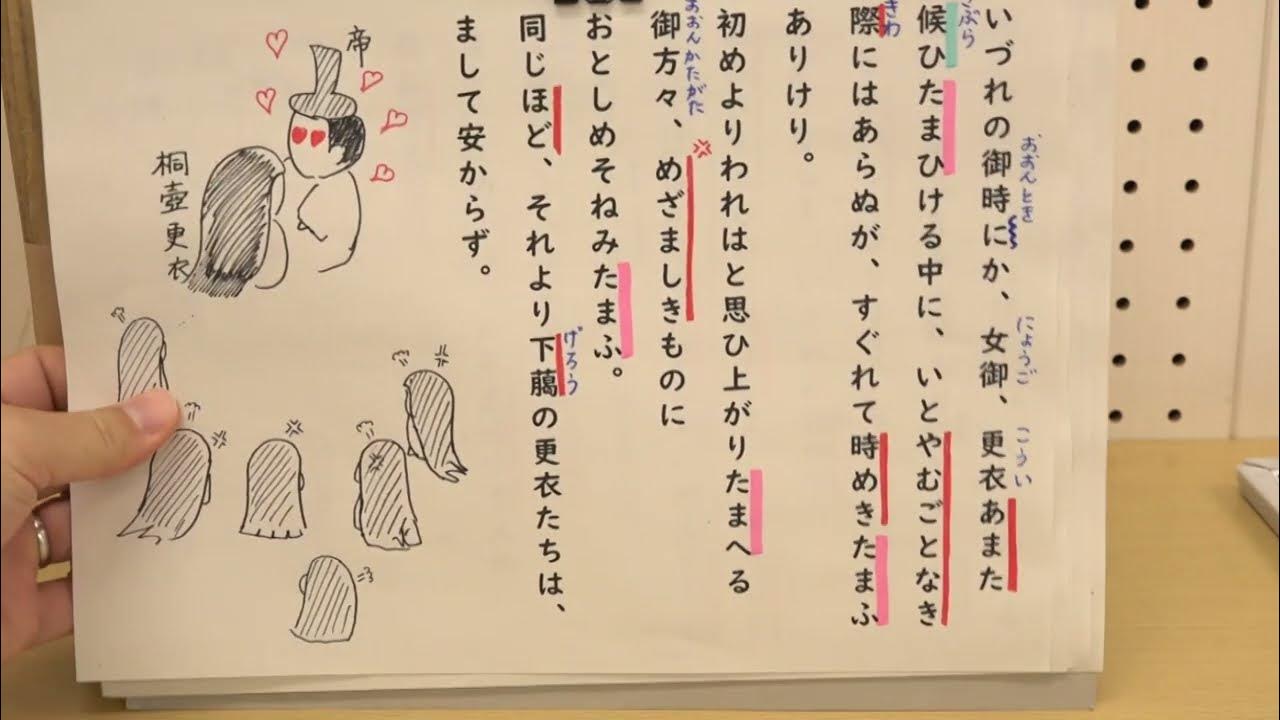 いづれの御時にか、女御、更衣あまた
おおんとき
にょうご
こうい
候ひたまひける中に、いとやむごとなき
ぶら
際にはあらぬが、すぐれて時めきたまふ
きわ
ありけり。
初めよりわれはと思ひ上がりたまへる
御方々、めざましきものに
おおんかたがた
おとしめそねみたまふ。
同じほど、それより下﨟の更衣たちは、
げろう
まして安からず。
帝
桐壺更衣